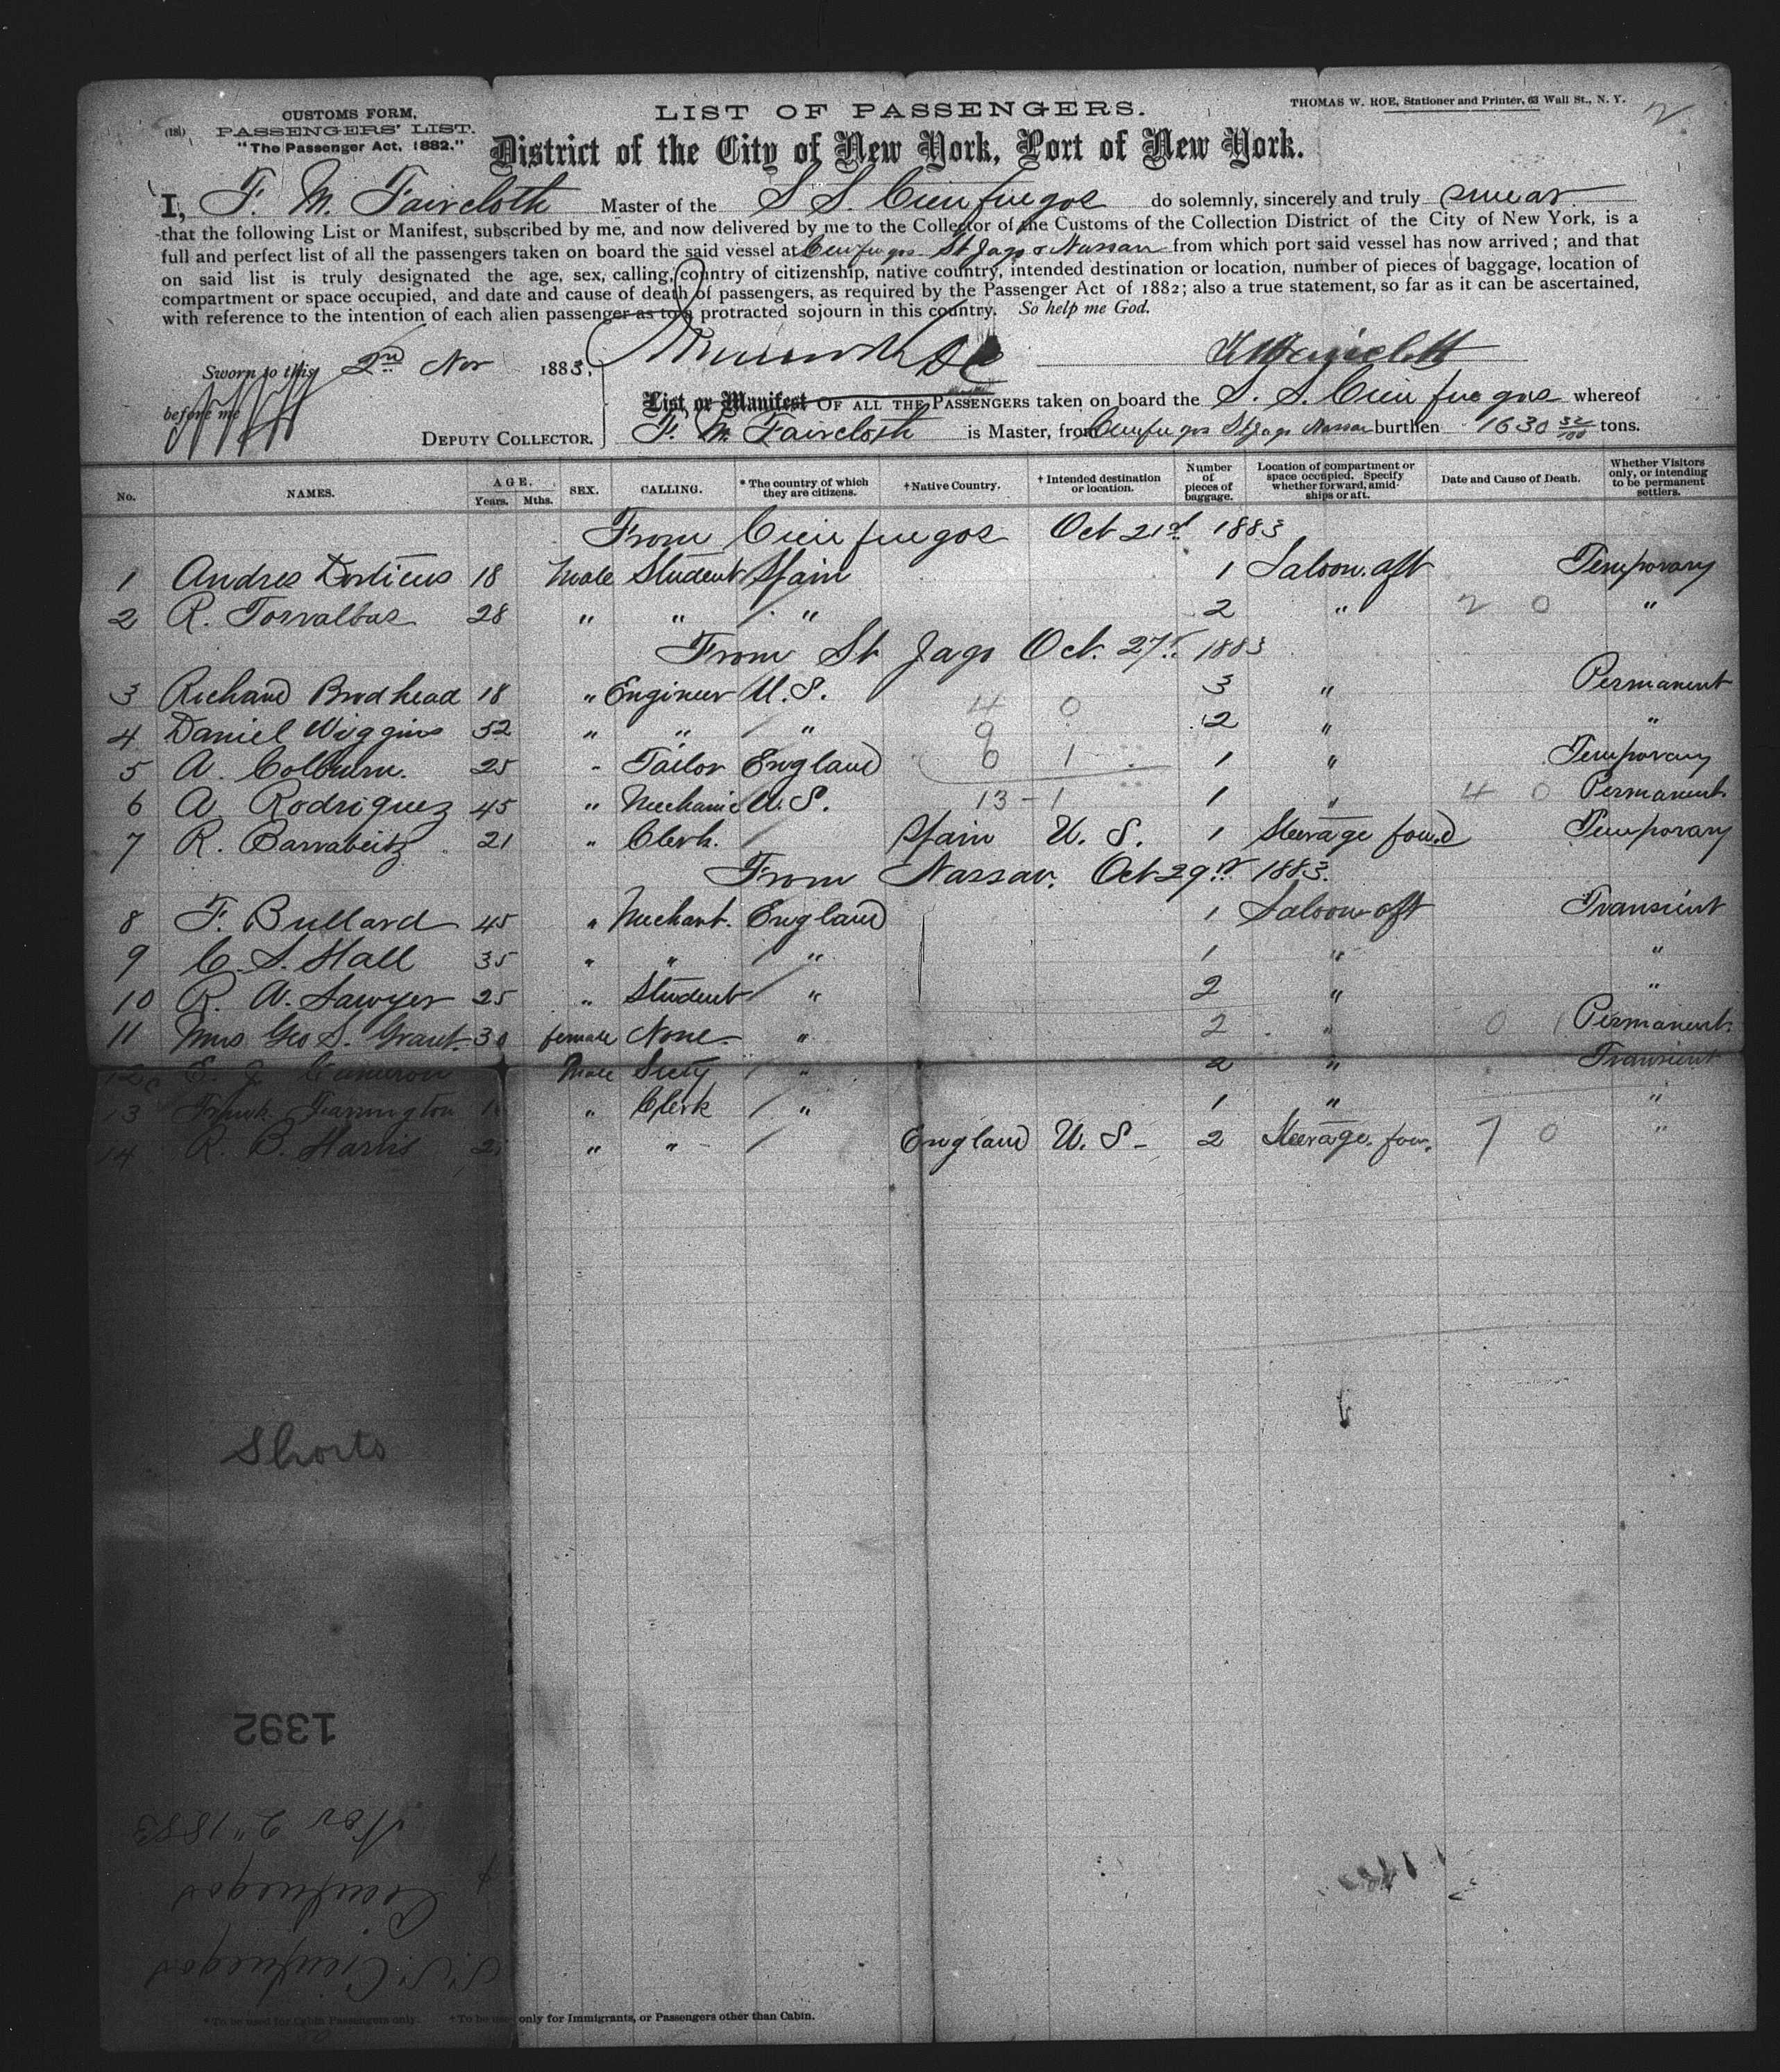 CUSTOMS FORM,
(181) PASSENGERS' LIST.
"The Passenger Act, 1882."
LIST OF PASSENGERS.
THOMAS W. ROE, Stationer and Printer, 63 Wall St., N. Y.
2
District of the City of New York, Port of New York.
I, F. M. Faircloth Master of the S S. Cienfuegos do solemnly, sincerely and truly swear
that the following List or Manifest, subscribed by me, and now delivered by me to the Collector of the Customs of the Collection District of the City of New York, is a
full and perfect list of all the passengers taken on board the said vessel at Cienfuegos St Jago & Nassau from which port said vessel has now arrived; and that
on said list is truly designated the age, sex, calling, country of citizenship, native country, intended destination or location, number of pieces of baggage, location of
compartment or space occupied, and date and cause of death of passengers, as required by the Passenger Act of 1882; also a true statement, so far as it can be ascertained,
with reference to the intention of each alien passenger as to a protracted sojourn in this country. So help me God.
Sworn to this 2nd Nov 1883,
before me
DEPUTY COLLECTOR.
List or Manifest OF ALL THE PASSENGERS taken on board the S. S. Cienfuegos whereof
F. M. Faircloth is Master, from Cienfuegos St Jago Nassau burthen 1630 32/100 tons.
No. NAMES. AGE. Years. Mths. SEX. CALLING. * The country of which they are citizens. † Native Country. † Intended destination or location. Number of pieces of baggage. Location of compartment or space occupied. Specify whether forward, amidships or aft. Date and Cause of Death. Whether Visitors only, or intending to be permanent settlers.
From Cienfuegos Oct 21st 1883
1 Andres Dorticus 18 Male Student Spain 1 Saloon aft Temporary
2 R. Torralbas 28 " " / " 2 " 2 0 "
From St Jago Oct. 27th 1883
3 Richard Brodhead 18 " Engineer U. S. 4 0 3 " Permanent
4 Daniel Wiggins 52 " " / " 9 2 " "
5 A. Colburn. 25 " Tailor England 0 1 1 " Temporary
6 A Rodriguez 45 " Mechanic U. S. 13 - 1 1 " 4 0 Permanent
7 R. Barrabeitz 21 " Clerk. / Spain U. S. 1 Steerage forwd Temporary
From Nassau. Oct 29th 1883.
8 F. Bullard 45 " Mechant. England 1 Saloon aft Transient
9 C. S. Hall 35 " " / " 1 " "
10 R. A. Sawyer 25 " Student / " 2 " "
11 Mrs Geo S. Grant 30 female None " 2 " 0 1 Permanent.
12 E. J. Cameron Male / " 2 " Transient
13 Frank Farrington " Clerk / " 1 " "
14 R. B. Harris " " / England U. S 2 Steerage. forw. 7 0 "
Shorts
1392
Nov 2" 1883
Cienfuegos
S. S. Cienfuegos
* To be used for Cabin Passengers only. † To be used only for Immigrants, or Passengers other than Cabin.